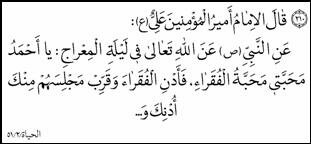 ﴿٢١٠﴾ قالَ الإمامُ أميرُ المُؤمِنينَ عَلِيٌّ(ع):
عَنِ النَّبِيِّ(ص) عَنِ اللهِ تَعالىٰ في لَيلَةِ المِعراجِ: يا أحمَدُ
مَحَبَّتي مَحَبَّةُ الفُقَراءِ، فَأدنِ الفُقَراءَ وَقَرِّب مَجلِسَهُم مِنكَ
أُدنِكَ وَ...
الحياة/٢/٥١